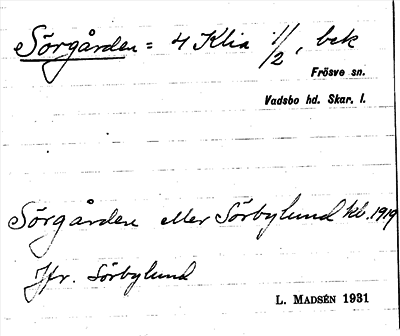 Sörgården = 4 Klia 1/2, bek
Frösve sn.
Vadsbo hd. Skar. l.
Sörgården eller Sörbylund Kb. 1919
Jfr. Sörbylund
L. MADSÉN 1931